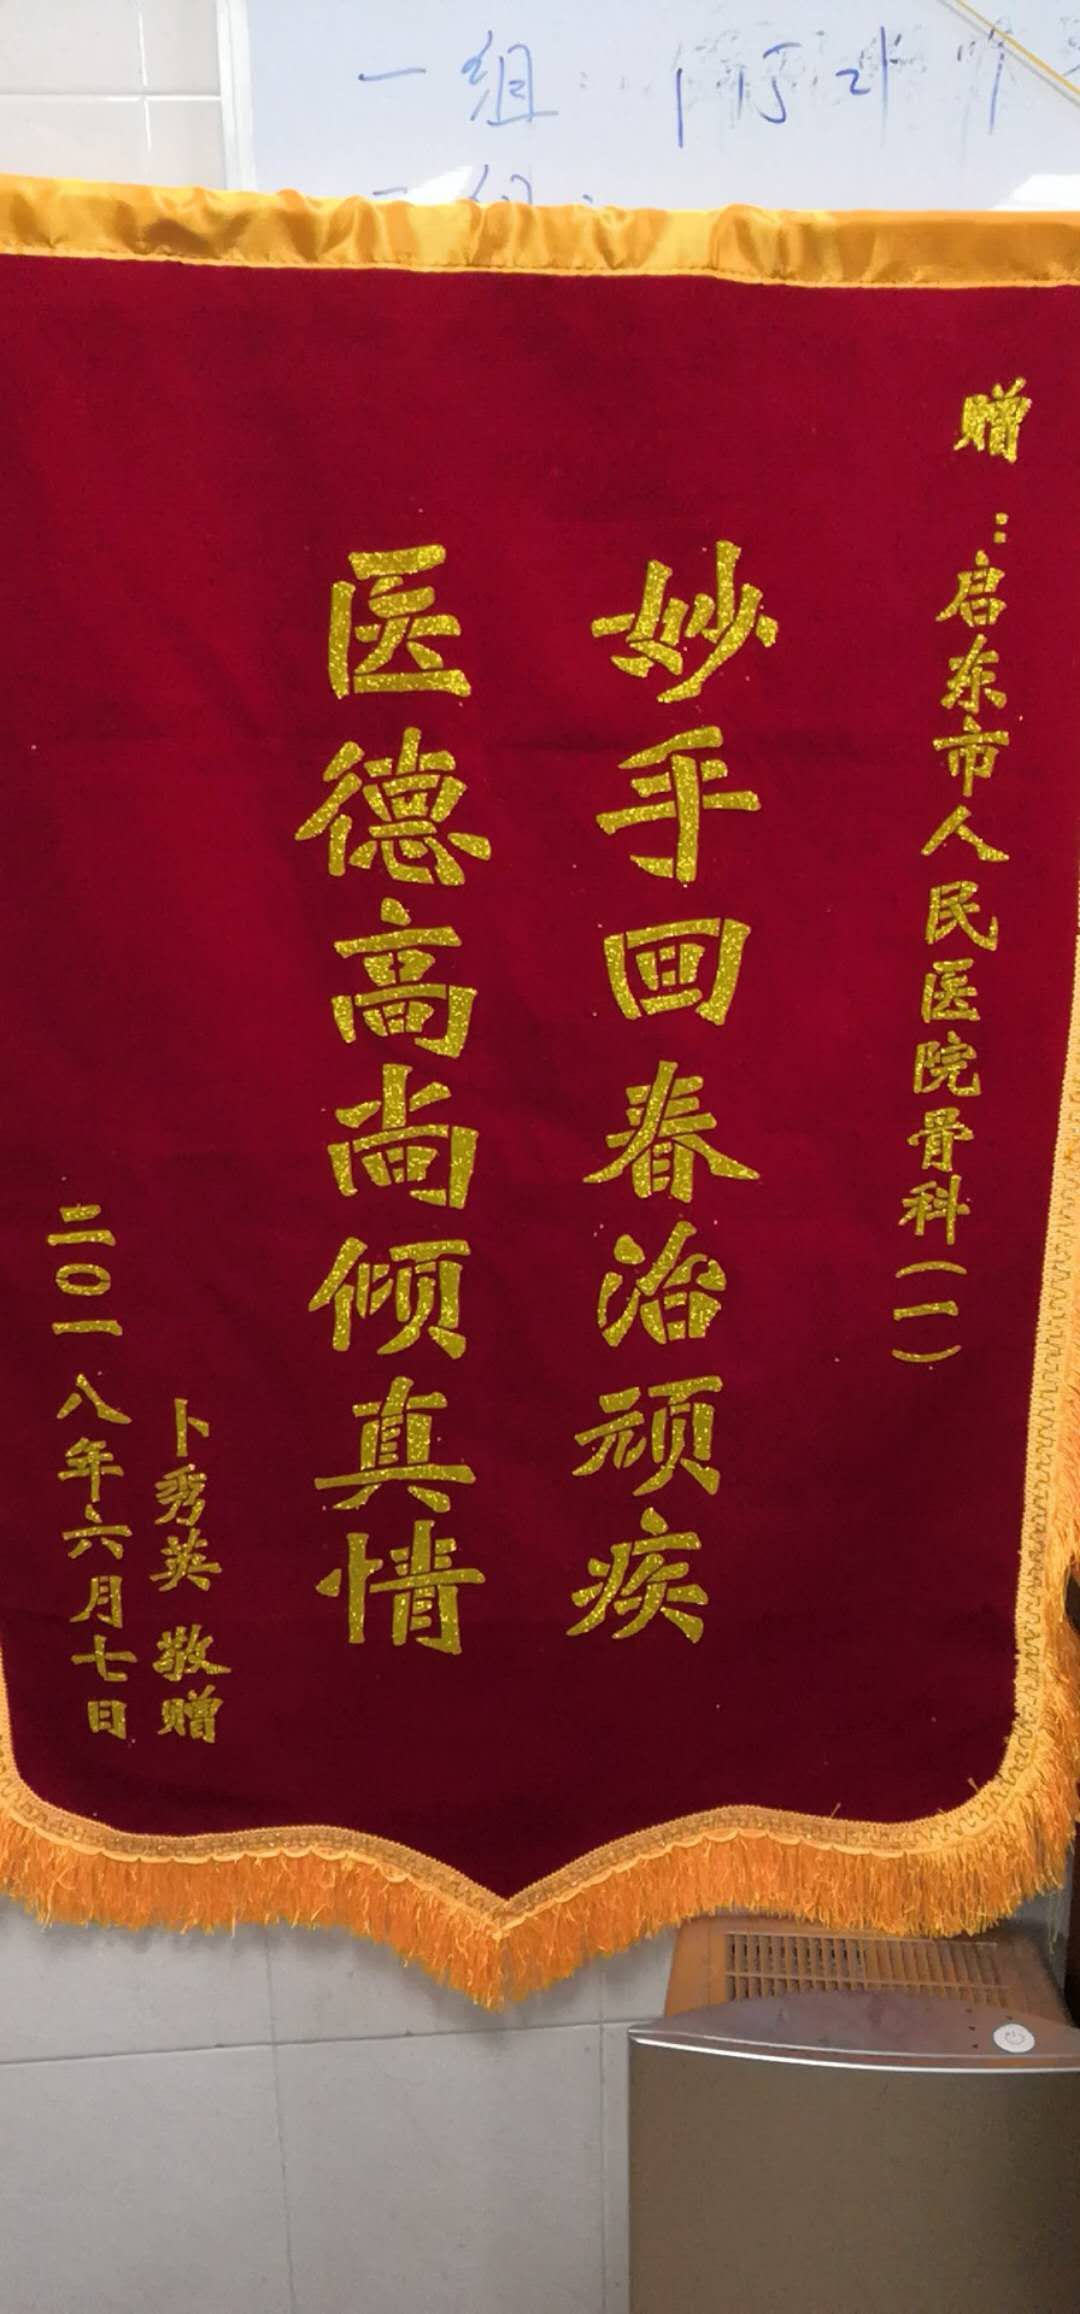 一组:
赠:启东市人民医院骨科(一)
妙手回春治顽疾
医德高尚倾真情
卜秀英 敬赠
二〇一八年六月七日